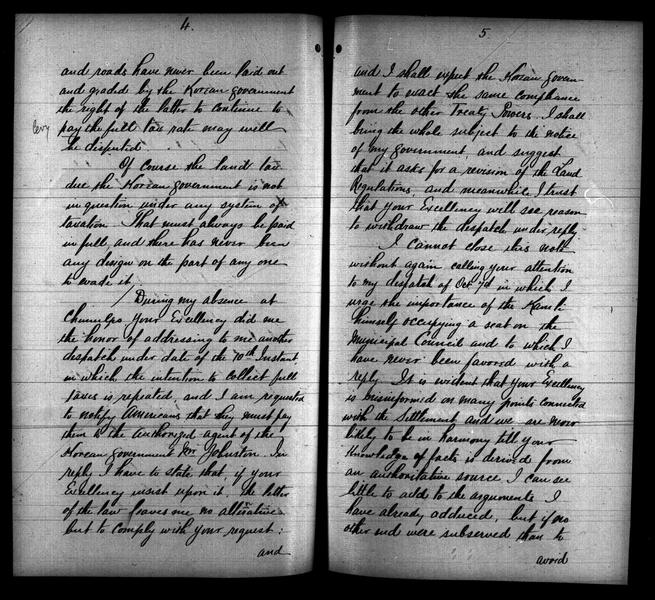 4.
and roads have never been laid out
and graded by the Korean government
the right of the latter to continue to
levy
pay the full tax rate may well
be disputed.
Of course the land tax
due the Korean government is not
in question under any system of
taxation. That must always be paid
in full, and there has never been
any design on the part of any one
to evade it.
During my absence at
Chemulpo Your Excellency did me
the honor of addressing to me another
despatch under date of the 10th Instant
in which the intention to collect full
taxes is repeated, and I am requested
to notify Americans that they must pay
them to the authorized agent of the
Korean government Mr Johnston. In
reply I have to state that, if your
Excellency insist upon it, the letter
of the law leaves me no alternative
but to comply with your request:
and
5
and I shall expect the Korean govern-
ment to exact the same compliance
from the other Treaty Powers. I shall
bring the whole subject to the notice
of my government, and suggest
that it asks for a revision of the Land
Regulations, and meanwhile, I trust
that your Excellency will see reason
to withdraw the dispatch under reply.
I cannot close this note
without again calling your attention
to my dispatch of Oct 7th in which I
urge the importance of the Kamli
himself occupying a seat on the
Municipal Council and to which I
have never been favored with a
reply. It is evident that Your Excellency
is misinformed on many points connected
with the Settlement and we are more
likely to be in harmony till your
knowledge of facts is derived from
an authoritative source. I can see
little to add to the arguments I
have already adduced, but if no
other end were subserved than to
avoid